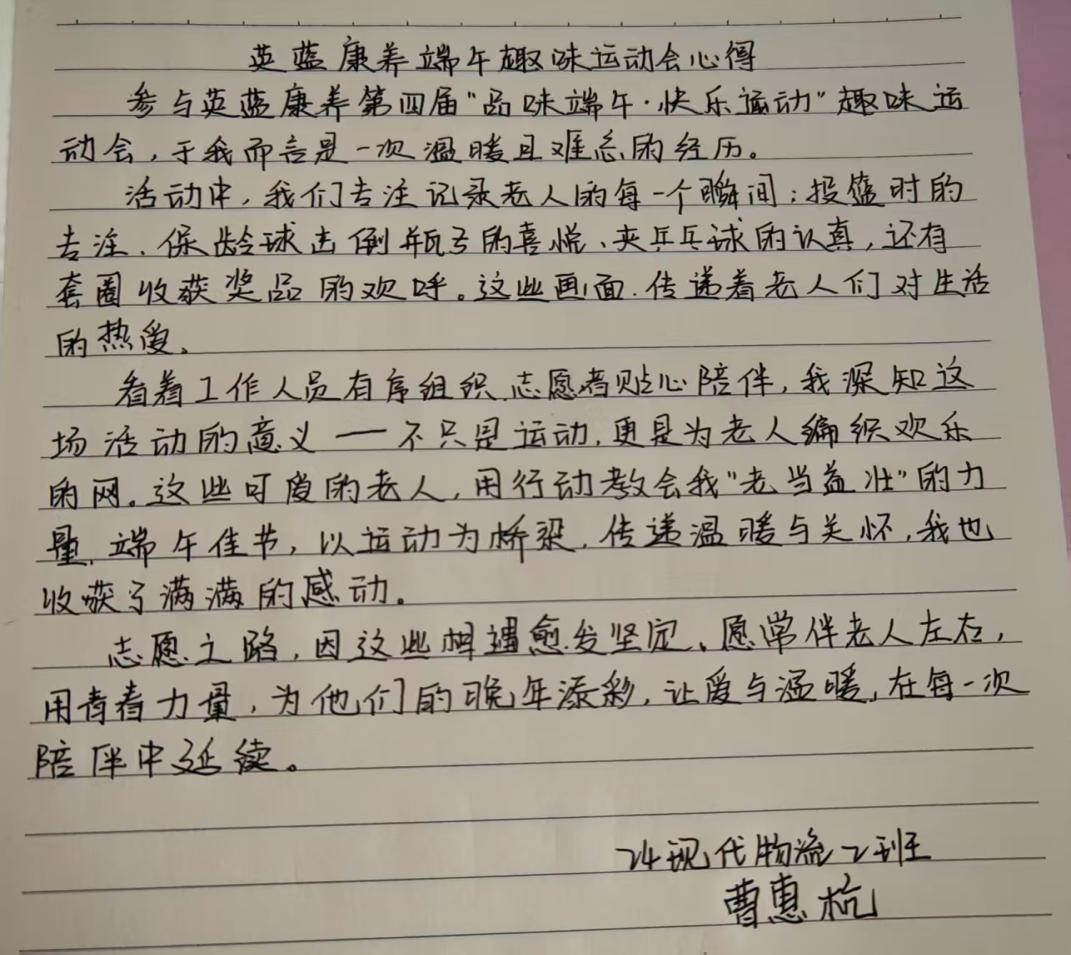 英蓝康养端午趣味运动会心得
参与英蓝康养第四届“品味端午·快乐运动”趣味运
动会，于我而言是一次温暖且难忘的经历。
活动中，我们专注记录老人的每一个瞬间：投篮时的
专注、保龄球击倒瓶子的喜悦、夹乒乓球的认真，还有
套圈收获奖品的欢呼。这些画面，传递着老人们对生活
的热爱。
看着工作人员有序组织、志愿者贴心陪伴，我深知这
场活动的意义——不只是运动，更是为老人编织欢乐
的网。这些可爱的老人，用行动教会我“老当益壮”的力
量，端午佳节，以运动为桥梁，传递温暖与关怀，我也
收获了满满的感动。
志愿之路，因这些相遇愈发坚定。愿常伴老人左右，
用青春力量，为他们的晚年添彩，让爱与温暖，在每一次
陪伴中延续。
24现代物流2班
曹惠杭